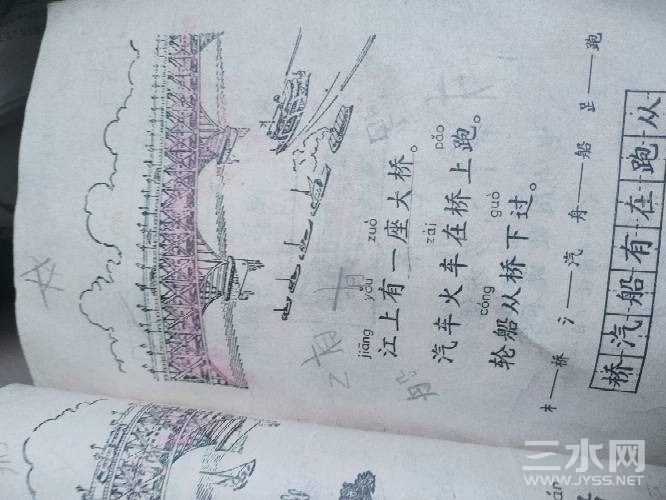 jiāng yǒu zuò
江上有一座大桥。
zài pǎo
汽车火车在桥上跑。
cóng guò
轮船从桥下过。
木——桥 氵——汽 舟——船 𧾷——跑
桥汽船有在跑从
三水网
WWW.JYSS.NET